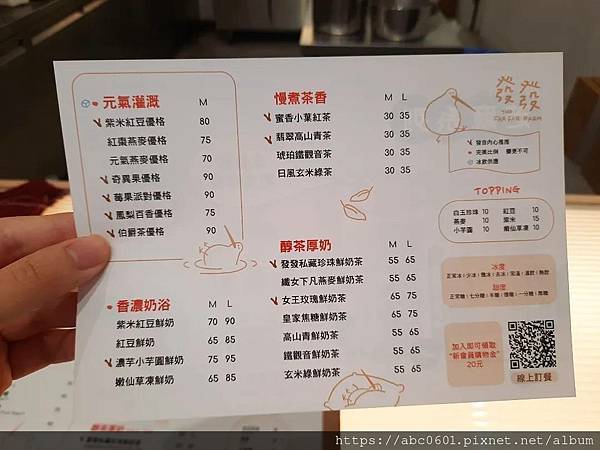 元氣灌溉 M
紫米紅豆優格 80
紅棗燕麥優格 75
元氣燕麥優格 70
奇異果優格 90
莓果派對優格 90
鳳梨百香優格 75
伯爵茶優格 90
香濃奶浴 M L
紫米紅豆鮮奶 70 90
紅豆鮮奶 65 85
濃芋小芋圓鮮奶 75 95
嫩仙草凍鮮奶 65 85
慢煮茶香 M L
蜜香小葉紅茶 30 35
翡翠高山青茶 30 35
琥珀鐵觀音茶 30 35
日風玄米綠茶 30 35
醇茶厚奶 M L
發發私藏珍珠鮮奶茶 55 65
纖女下凡燕麥鮮奶茶 55 65
女王玫瑰鮮奶茶 65 75
皇家焦糖鮮奶茶 65 75
高山青鮮奶茶 55 65
鐵觀音鮮奶茶 55 65
玄米綠鮮奶茶 55 65
發發
發自內心推薦
完美比例 變更不可
冰飲供應
TOPPING
白玉珍珠 10 紅豆 10
燕麥 10 紫米 15
小芋圓 10 嫩仙草凍 10
冰度
正常冰|少冰|微冰|去冰|常溫|溫飲|熱飲
甜度
正常糖|七分糖|半糖|微糖|一分糖|無糖
加入即可領取
"新會員購物金"
20元
線上訂餐
https://abc0601.pixnet.net/album